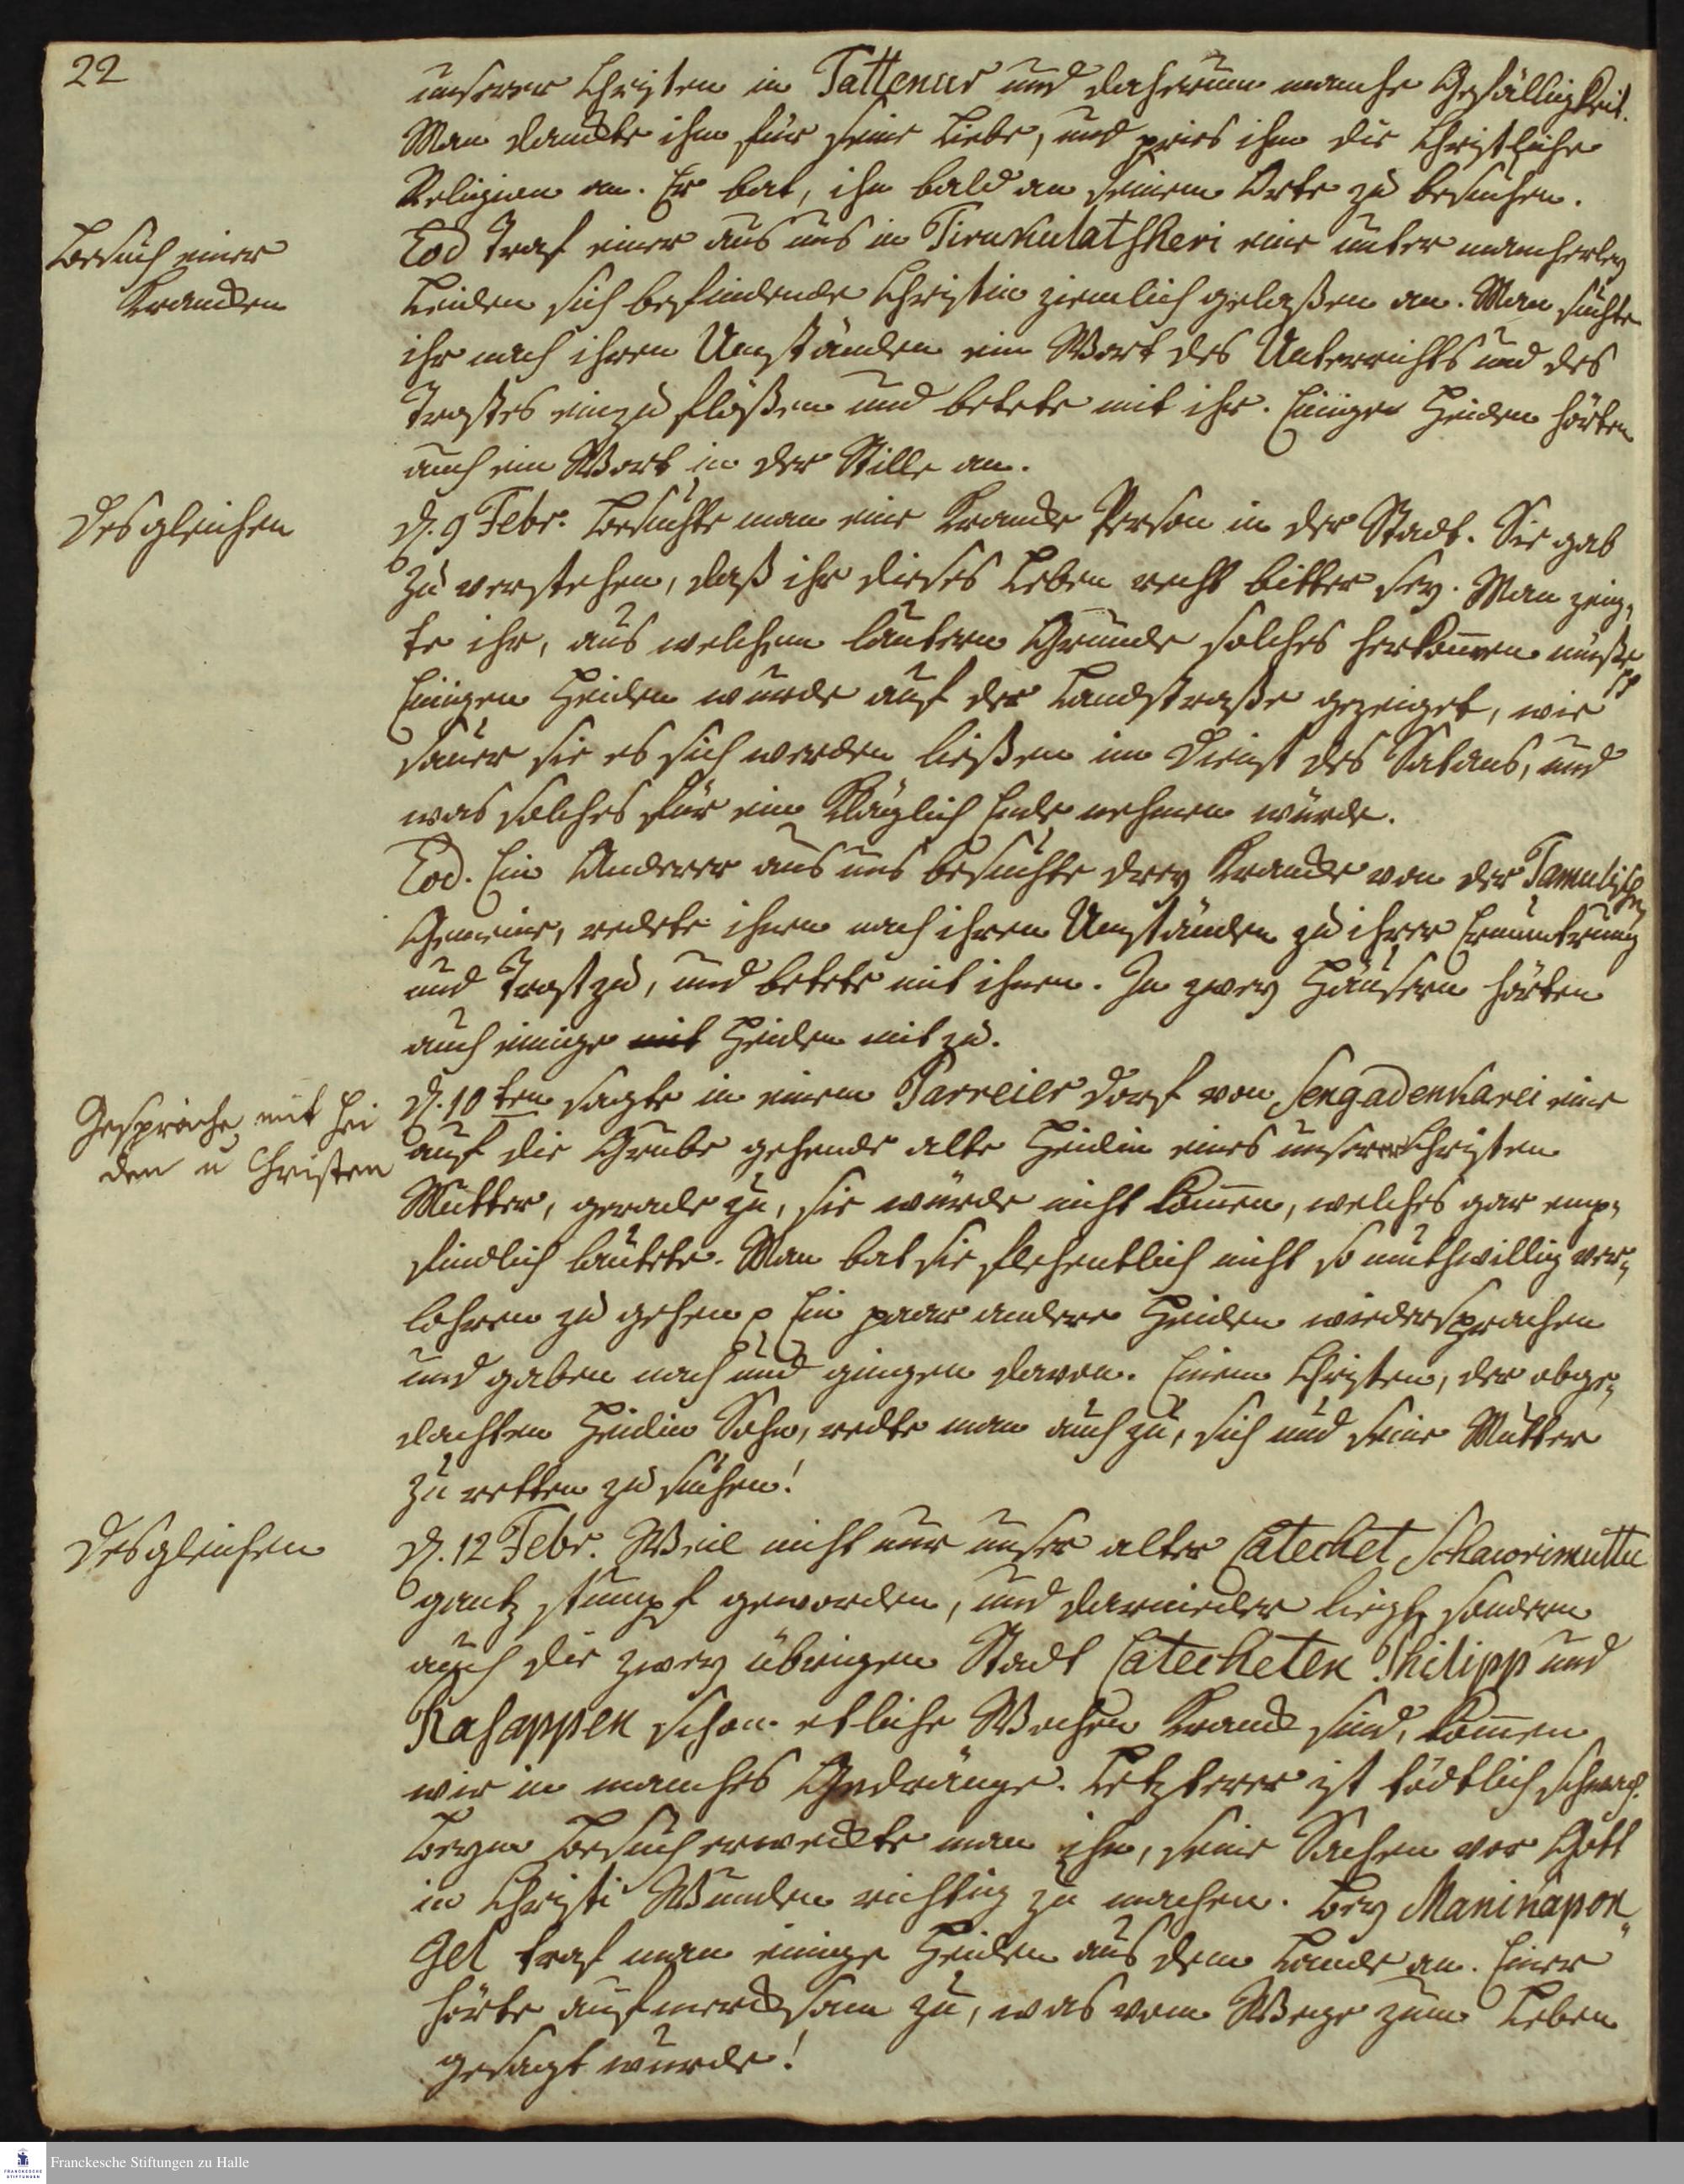 22
unserer Christen in Tattenur und daherum manche Gefälligkeit.
Man danckte ihm für seine Liebe, und pries ihm die Christliche
Religion an. Er bat, ihn bald an seinem Orte zu besuchen.
Besuch einer
Krancken
Eod traf einer aus uns in Tirukulatsheri eine unter mancherley
Leiden sich befindende Christin ziemlich gelaßen an. Man suchte
ihr nach ihren Umständen ein Wort des Unterrichts und des
Trostes einzuflößen und betete mit ihr. Einige Heiden hörten
auch ein Wort in der Stille an.
Desgleichen
d. 9 Febr. besuchte man eine krancke Person in der Stadt. Sie gab
zu verstehen, daß ihr dieses Leben recht bitter sey. Man zeig-
te ihr, aus welchem lautern Grunde solches herkommen müße
Einigen Heiden wurde auf der Landstraße gezeiget, wie
sauer sie es sich werden ließen im Dienst des Satans, und
was solches für ein kläglich Ende nehmen würde.
Eod. Ein Anderer aus uns besuchte drey Krancke von der Tamulischen
Gemeine, redete ihnen nach ihren Umständen zu ihrer Ermuntrung
und Trost zu, und betete mit ihnen. In zwey Häusern hörten
auch einige mit Heiden mit zu.
Gespräche mit Hei
den u Christen
d. 10ten sagte in einem Parreier dorf von Sengadenkarei eine
auf die Grube gehende alte Heidin eines unserer Christen
Mutter, gerade zu, sie würde nicht kommen, welches gar emp-
findlich lautete. Man bat sie flehentlich nicht so muthwillig ver-
lohren zu gehen Ein paar andere Heiden wiedersprachen
und gaben nach und gingen davon. Einem Christen, der obge-
dachten Heidin Sohn, redte man auch zu, sich und seine Mutter
zu retten zu suchen!
Desgleichen
d. 12 Febr. Weil nicht nur unser alter Catechet Schawrimuttu
gantz stumpf geworden, und darnieder liegt, sondern
auch die zwey übrigen Stadt Catecheten Philipp und
Rasappen schon etliche Wochen kranck sind, kommen
wir in manches Gedränge. Letzterer ist tödtlich schwach.
Beym Besuch erweckte man ihn, seine Sachen vor Gott
in Christi Wunden richtig zu machen. Bey Maninapon
gel traf man einige Heiden aus dem Lande an. Einer
hörte aufmercksam zu, was vom Wege zum Leben
gesagt wurde!
Franckesche Stiftungen zu Halle